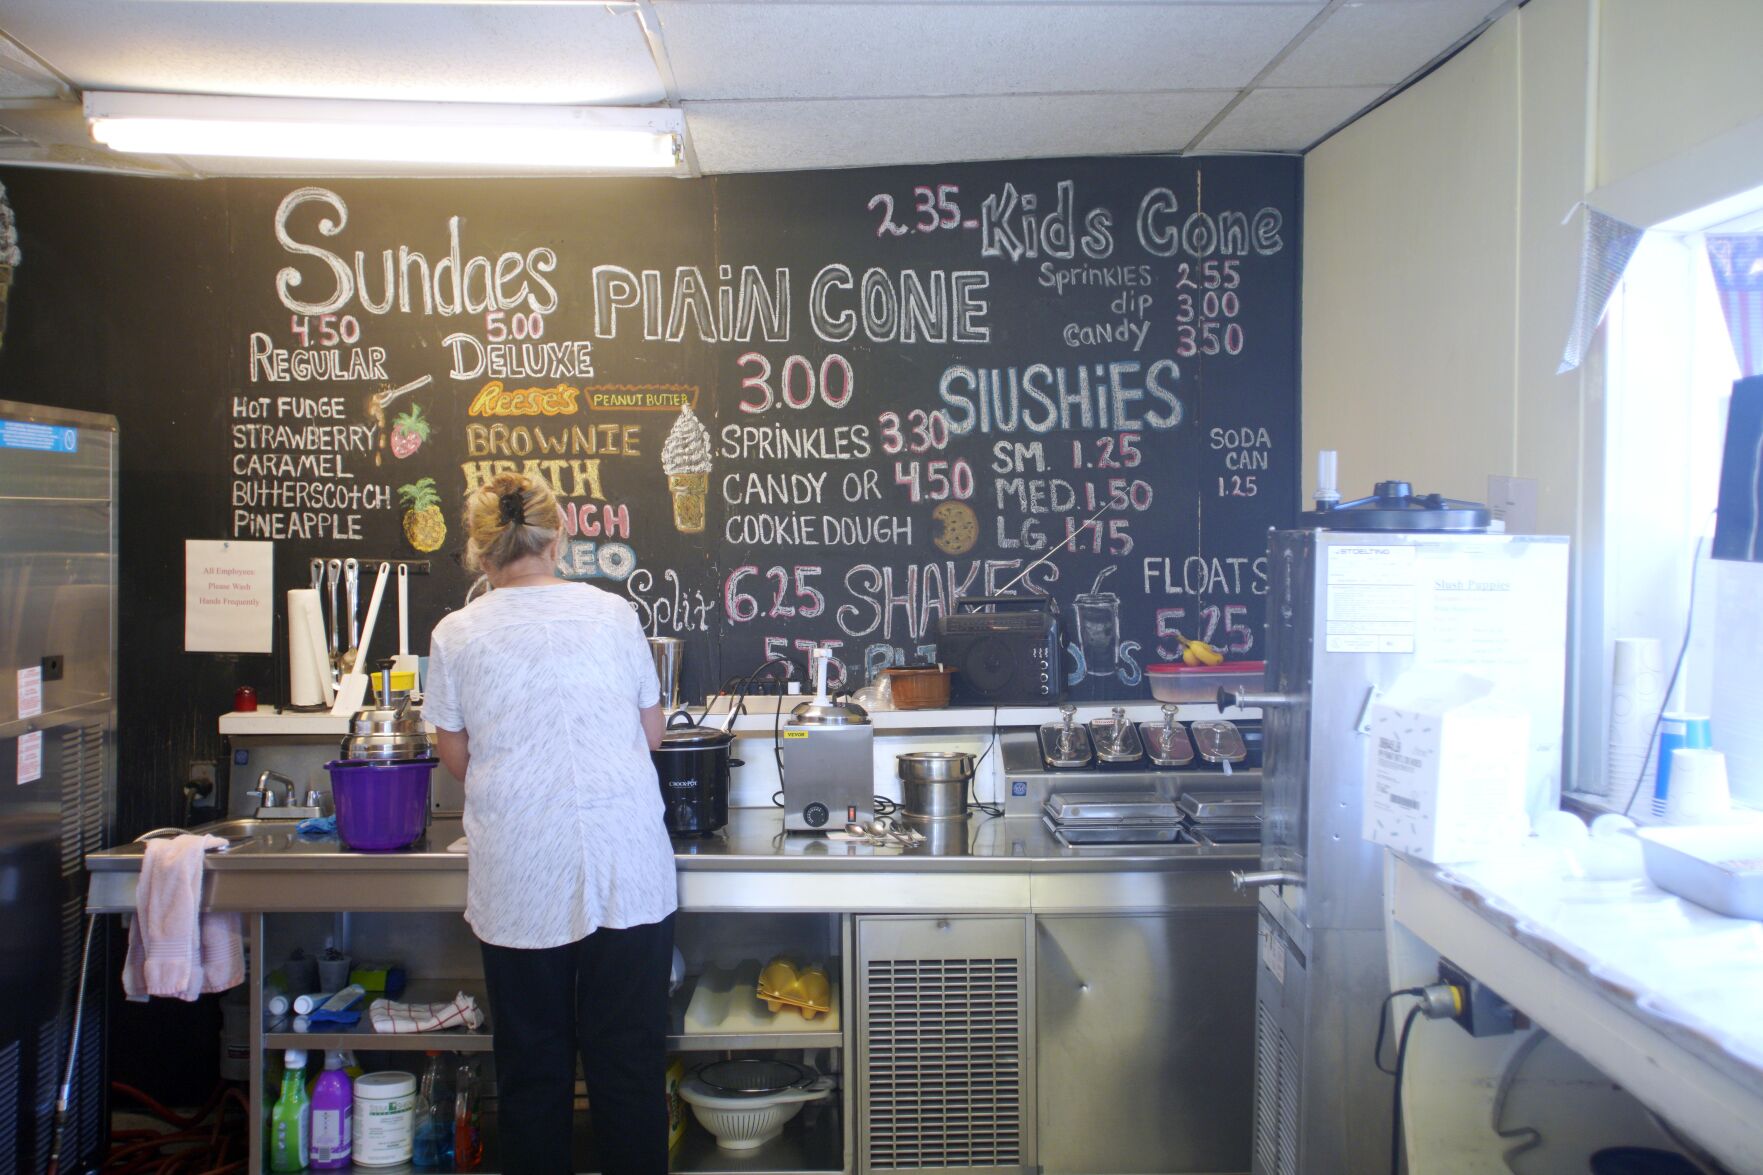 Sundaes
4.50 5.00
REGULAR DELUXE
HOT FUDGE
STRAWBERRY
CARAMEL
BUttERSCOtCH
PiNEAPPLE
Reese's PEANUT BUTTER
BROWNIE
HEATH
NCH
REO
PlAiN CONE
3.00
SPRiNKLES 3.30
CANDY OR 4.50
COOKIE DOUGH
2.35- Kids Cone
SPRiNKLES 2.55
dip 3.00
CANDY 3.50
SlUSHiES
SM. 1.25
MED. 1.50
LG. 1.75
SODA
CAN
1.25
Split 6.25
5.75
SHAKES
FLOATS
5.25
All Employees:
Please Wash
Hands Frequently
VEVOR
CROCK-POT
STOELTING
Slush Puppies